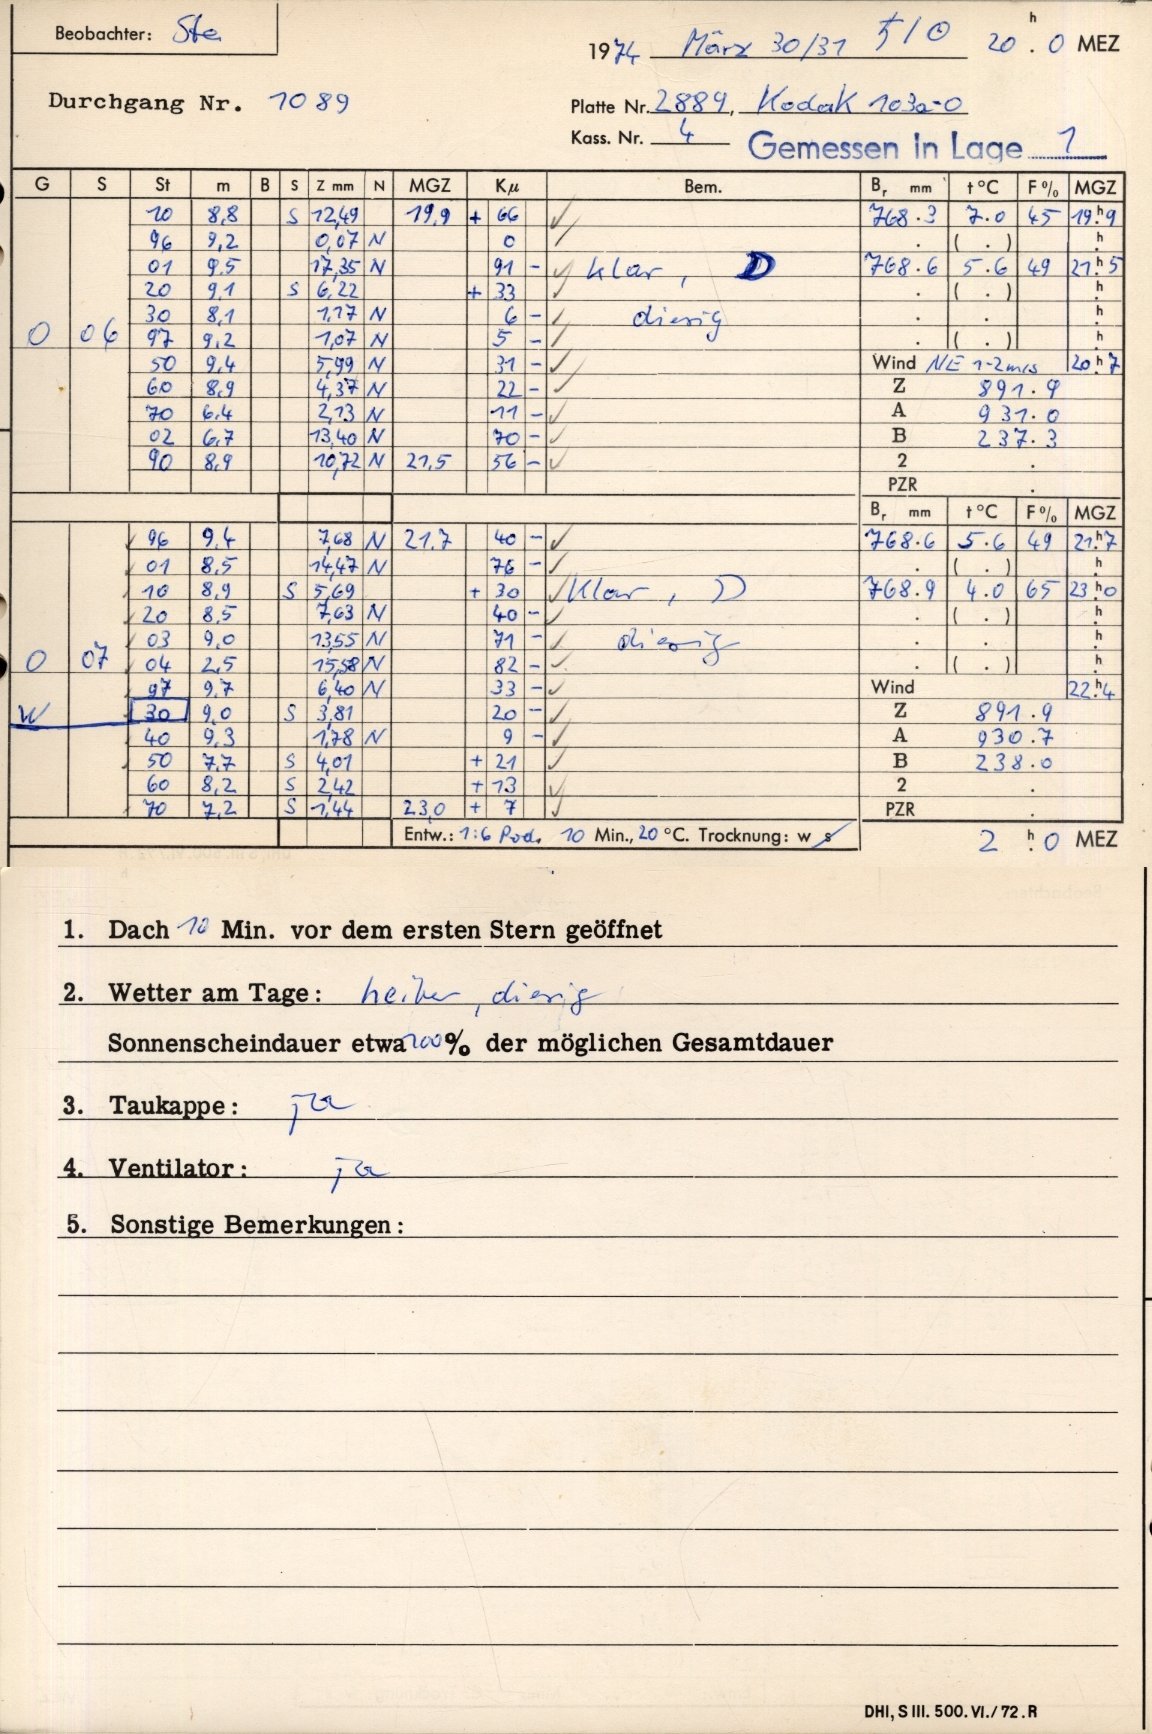 Beobachter: Ste
1974 März 30/31 5/0 20 h . 0 MEZ
Durchgang Nr. 1089
Platte Nr. 2889, Kodak 103a-0
Kass. Nr. 4 Gemessen in Lage 1
G S St m B S Z mm N MGZ Kµ Bem. Br mm t °C F % MGZ
10 8,8 S 12,49 19,9 + 66 ✓ 768.3 7.0 45 19h9
96 9,2 0,07 N 0 ✓ . ( . ) h
01 9,5 17,35 N 91 - ✓ klar, D 768.6 5.6 49 21h5
20 9,1 S 6,22 + 33 ✓ . ( . ) h
30 8,1 1,17 N 6 - ✓ diesig . . h
0 06 97 9,2 1,07 N 5 - ✓ . ( . ) h
50 9,4 5,99 N 31 - ✓ Wind NE 1-2 m/s 20h7
60 8,9 4,37 N 22 - ✓ Z 891.9
70 6,4 2,13 N 11 - ✓ A 931.0
02 6,7 13,40 N 70 - ✓ B 237.3
90 8,9 10,72 N 21,5 56 - ✓ 2 .
PZR .
Br mm t °C F % MGZ
96 9,4 7,68 N 21,7 40 - ✓ 768.6 5.6 49 21h7
01 8,5 14,47 N 76 - ✓ . ( . ) h
10 8,9 S 5,69 + 30 ✓ Klar, D 768.9 4.0 65 23h0
20 8,5 7,63 N 40 - ✓ . ( . ) h
03 9,0 13,55 N 71 - ✓ diesig . . h
0 07 04 2,5 15,58 N 82 - ✓ . ( . ) h
97 9,7 6,40 N 33 - ✓ Wind 22h4
W 30 9,0 S 3,81 20 - ✓ Z 891.9
40 9,3 1,78 N 9 - ✓ A 930.7
50 7,7 S 4,01 + 21 ✓ B 238.0
60 8,2 S 2,42 + 13 ✓ 2 .
70 7,2 S 1,44 23,0 + 7 ✓ PZR .
Entw.: 1:6 Rod. 10 Min., 20 °C. Trocknung: w s 2 h . 0 MEZ
1. Dach 10 Min. vor dem ersten Stern geöffnet
2. Wetter am Tage: heiter, diesig
Sonnenscheindauer etwa 100% der möglichen Gesamtdauer
3. Taukappe: ja
4. Ventilator: ja
5. Sonstige Bemerkungen:
DHI, S III. 500. VI./72. R